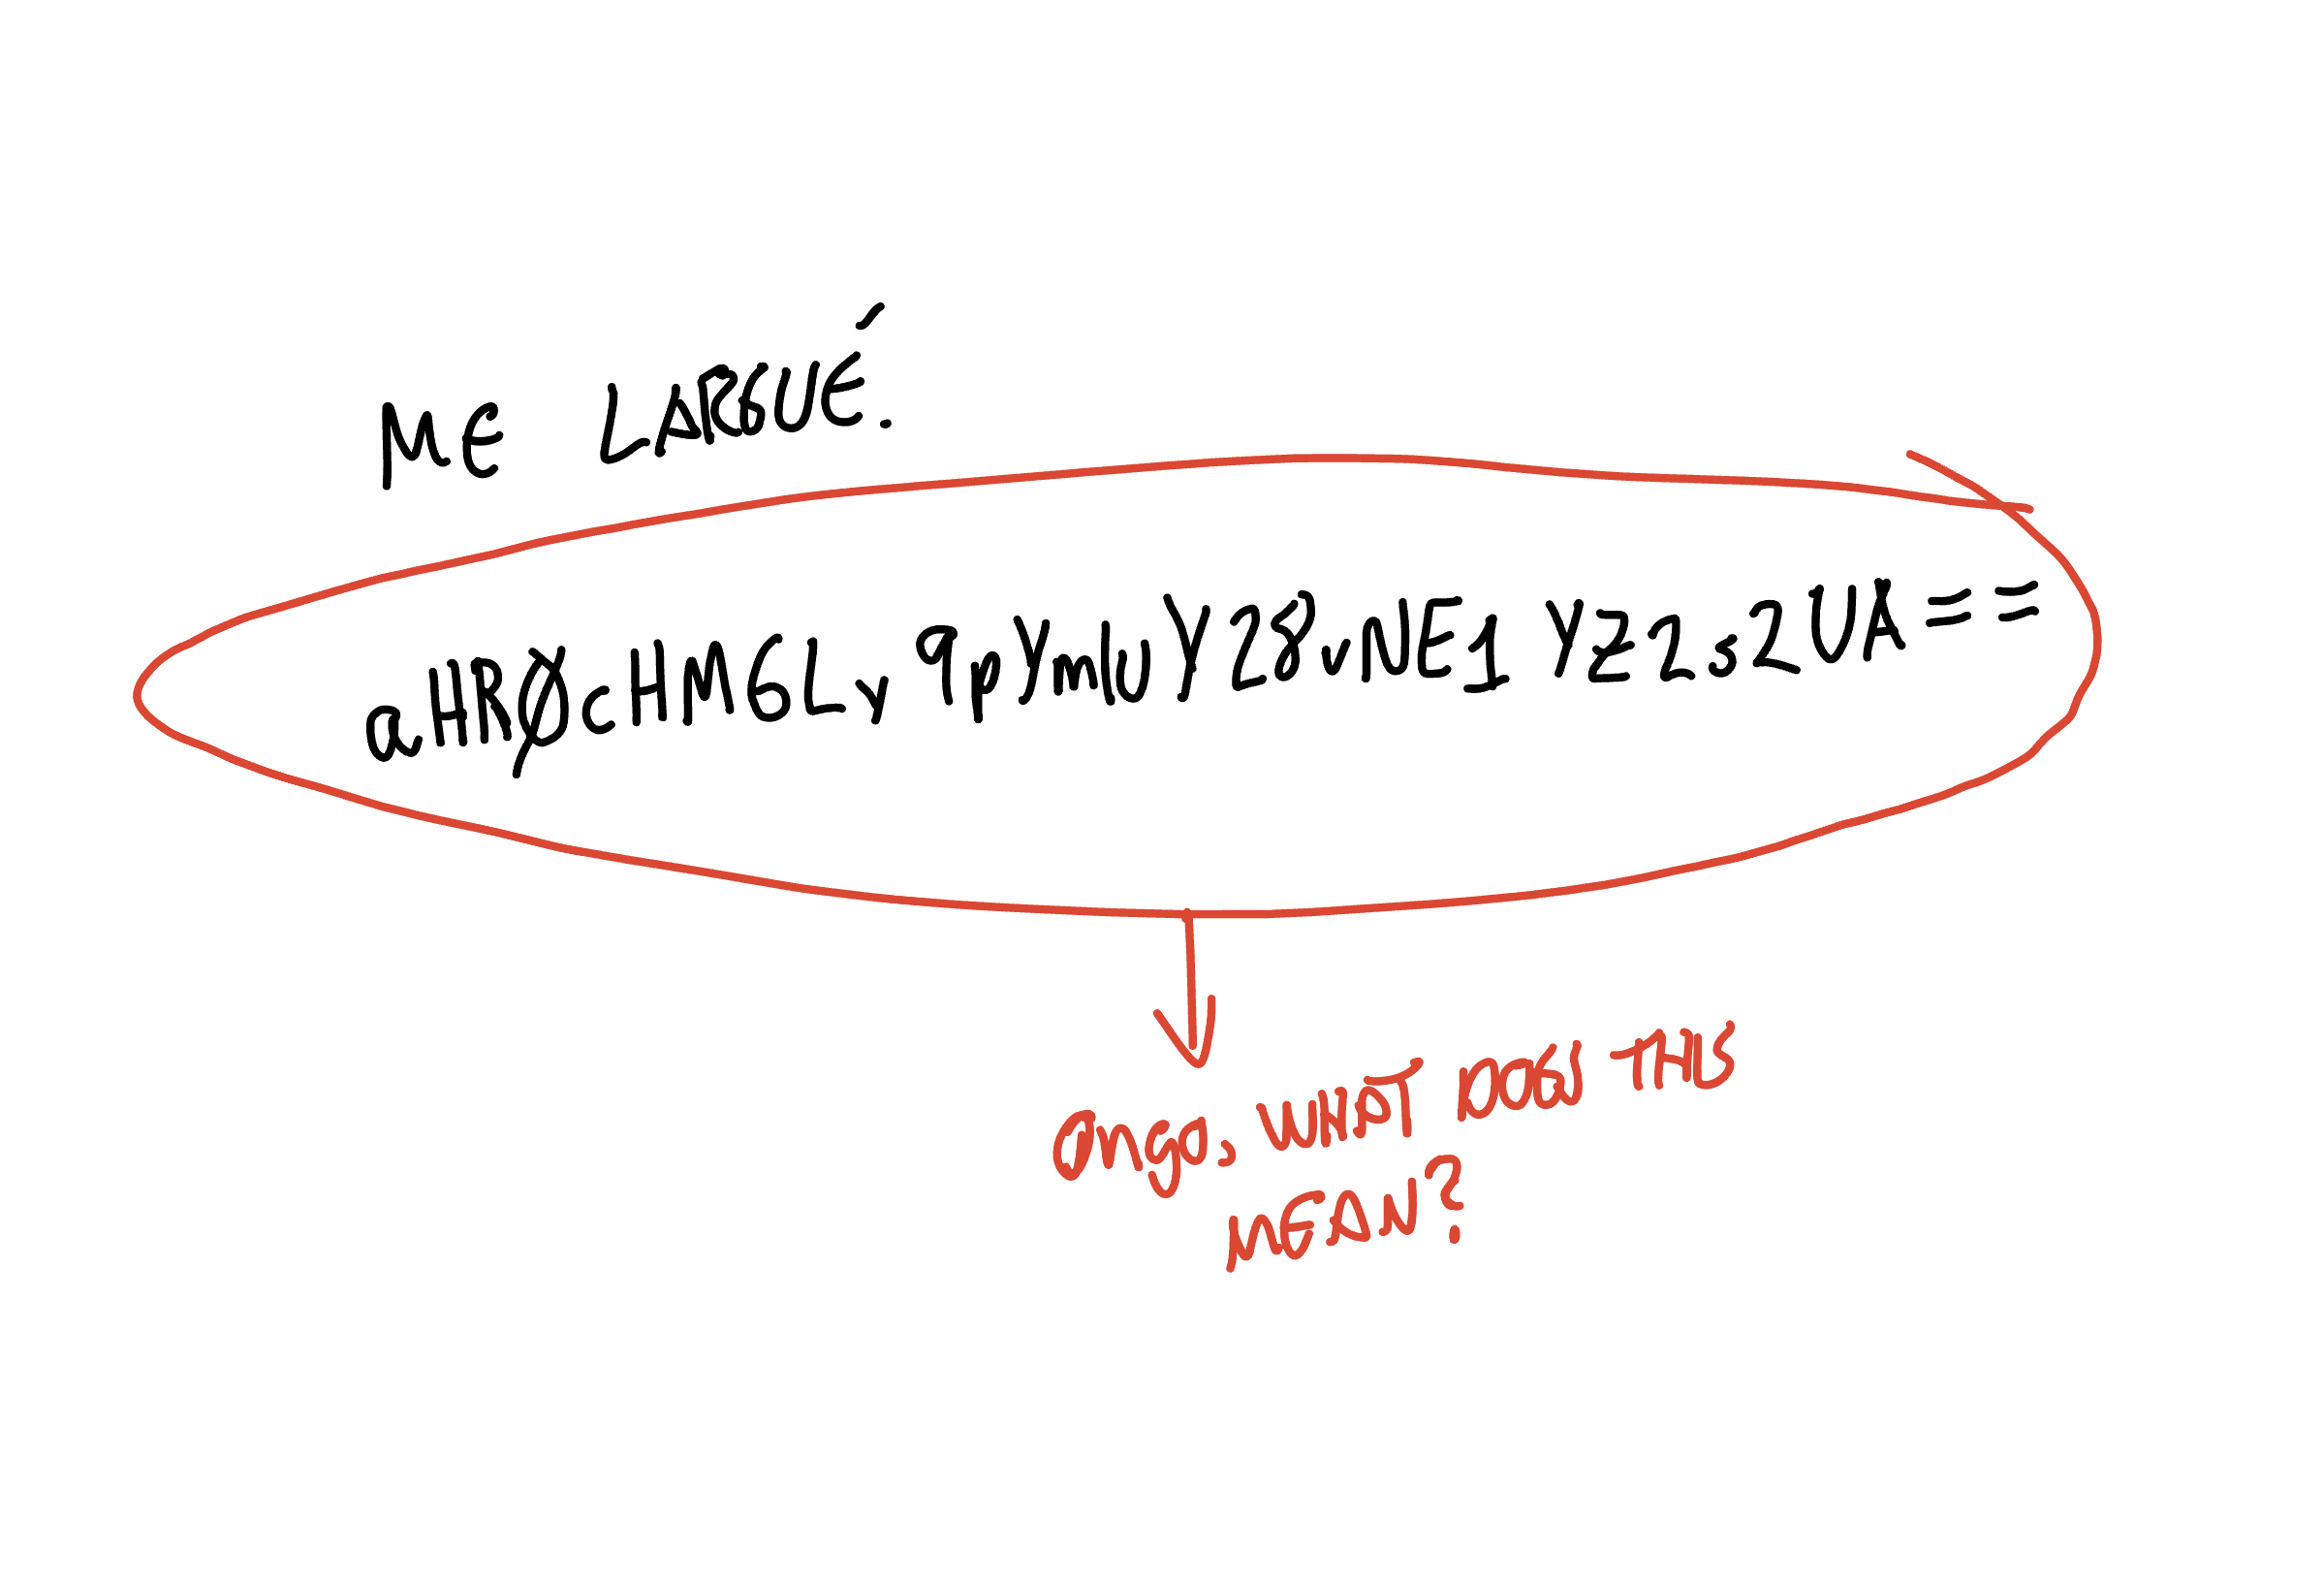 ME LARGUÉ.
aHR0cHM6Ly9pYmUuY28vNE1YZ2s2UA==
ongo, WHAT DOES THIS
MEAN?